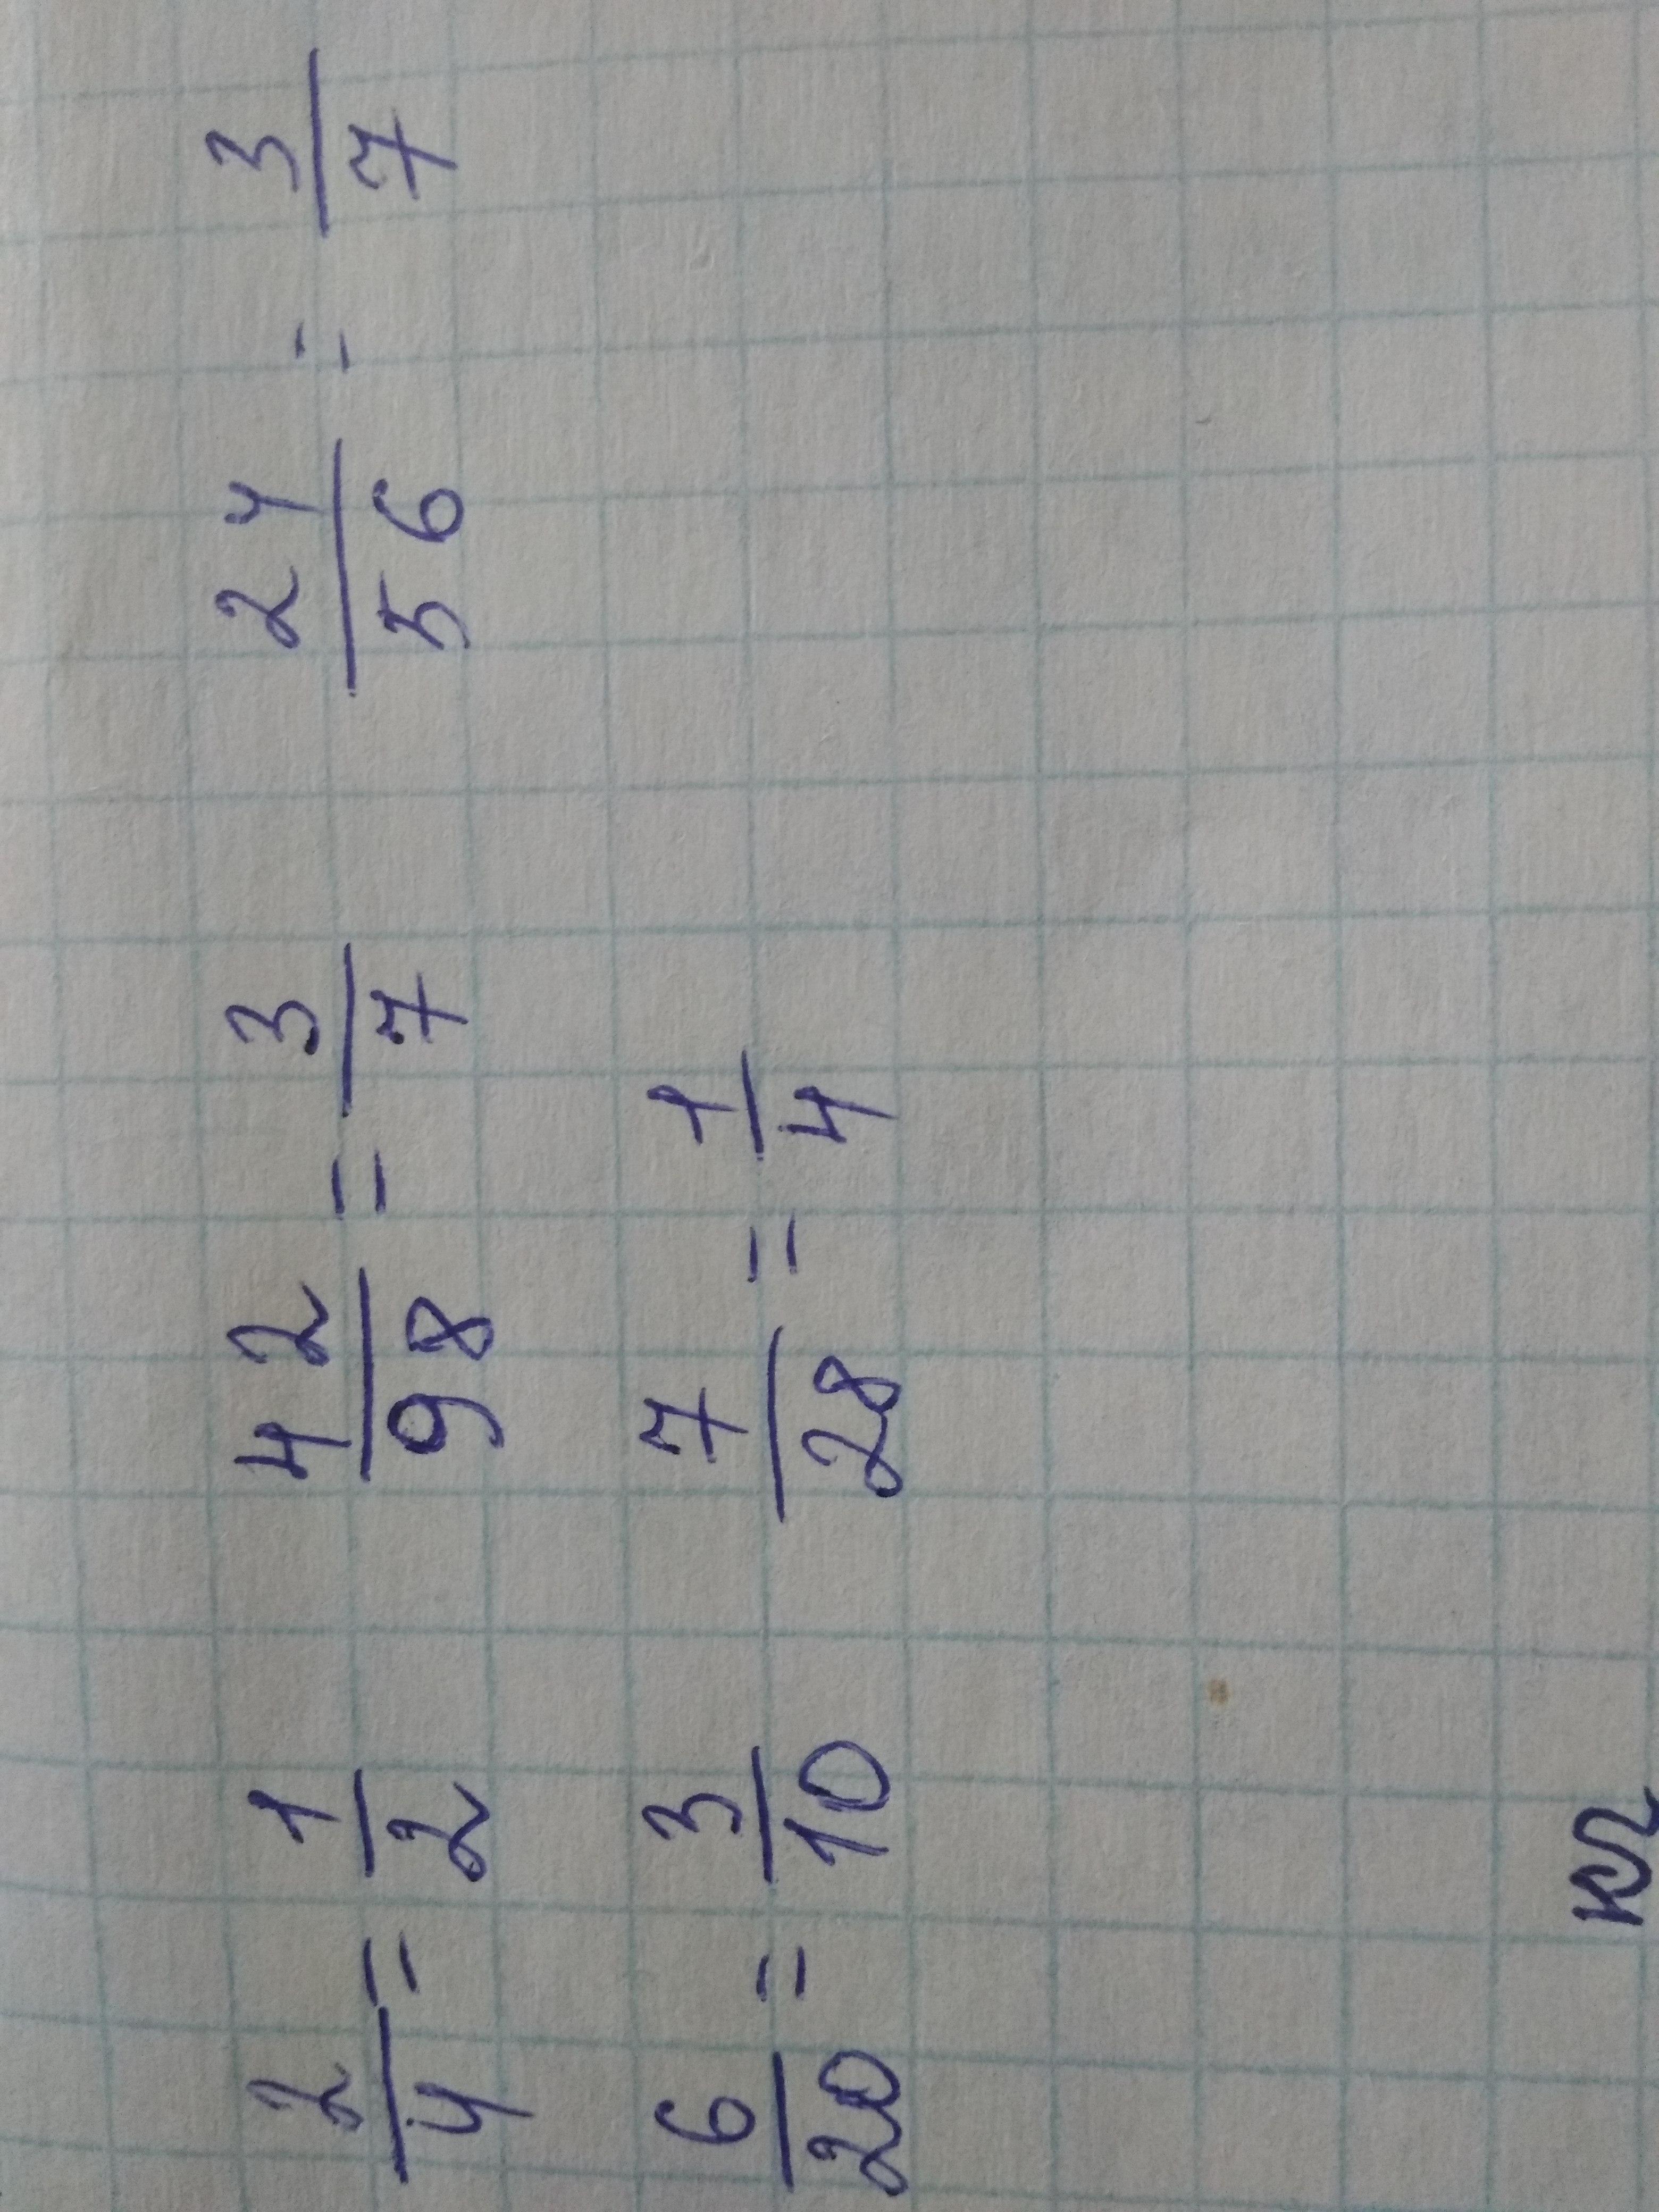 2/4 = 1/2 42/98 = 3/7 24/56 = 3/7
6/20 = 3/10 7/28 = 1/4